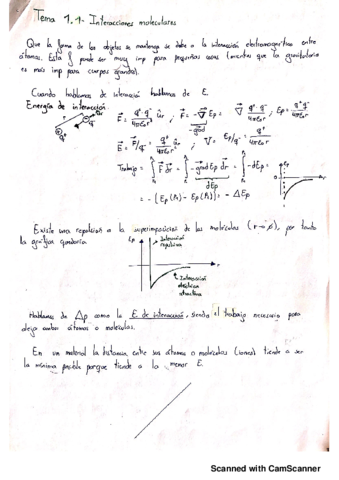 Tema 1.1- Interacciones moleculares
Que la forma de los objetos se mantenga se debe a la interacción electromagnética entre
átomos. Esta f puede ser muy imp para pequeñas cosas (mientras que la gravitatoria
es más imp para cuerpos grandes).
Cuando hablamos de interacción hablamos de E.
Energía de interacción:
Trabajo =
= - [Ep(P₂) - Ep(P₁)] = - ΔEp
Existe una repulsión a la superimposición de las moléculas (r→0), por tanto
la gráfica quedaría:
Ep
Interacción
repulsiva
r
Interacción
eléctrica
atractiva
Hablamos de Δp como la E de interacción, siendo el trabajo necesario para
dejar ambos átomos o moléculas.
En un material la distancia entre sus átomos o moléculas (iones) tiende a ser
la mínima posible porque tiende a la menor E.
Scanned with CamScanner